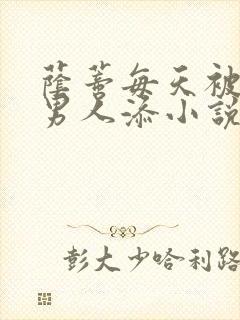 蔭蒂每天被
男人添小說
彭大少哈利路